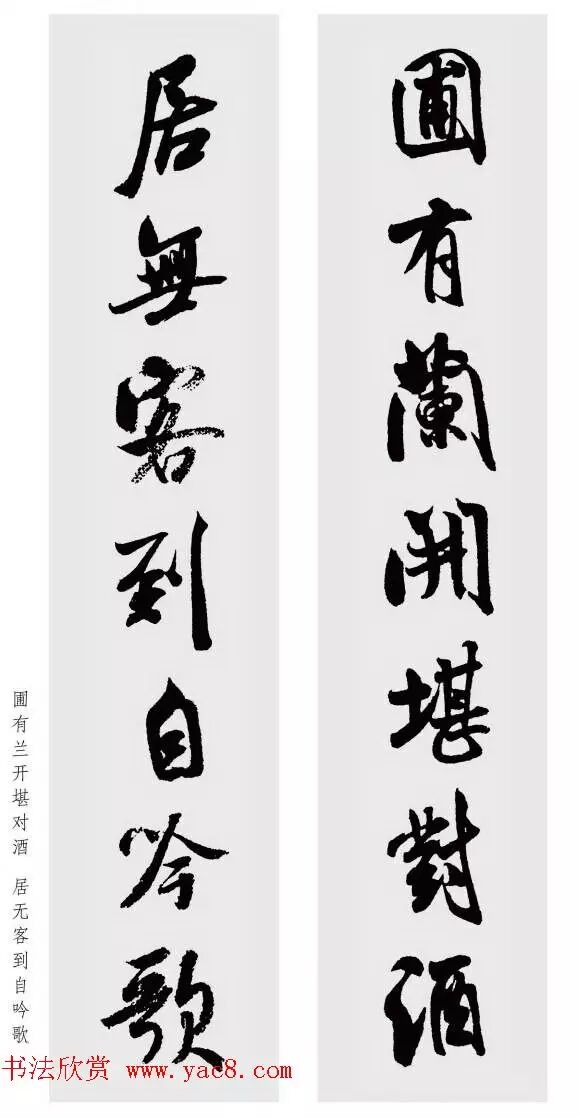 圃有蘭開堪對酒
居無客到自吟歌
圃有兰开堪对酒 居无客到自吟歌
书法欣赏 www.yac8.com